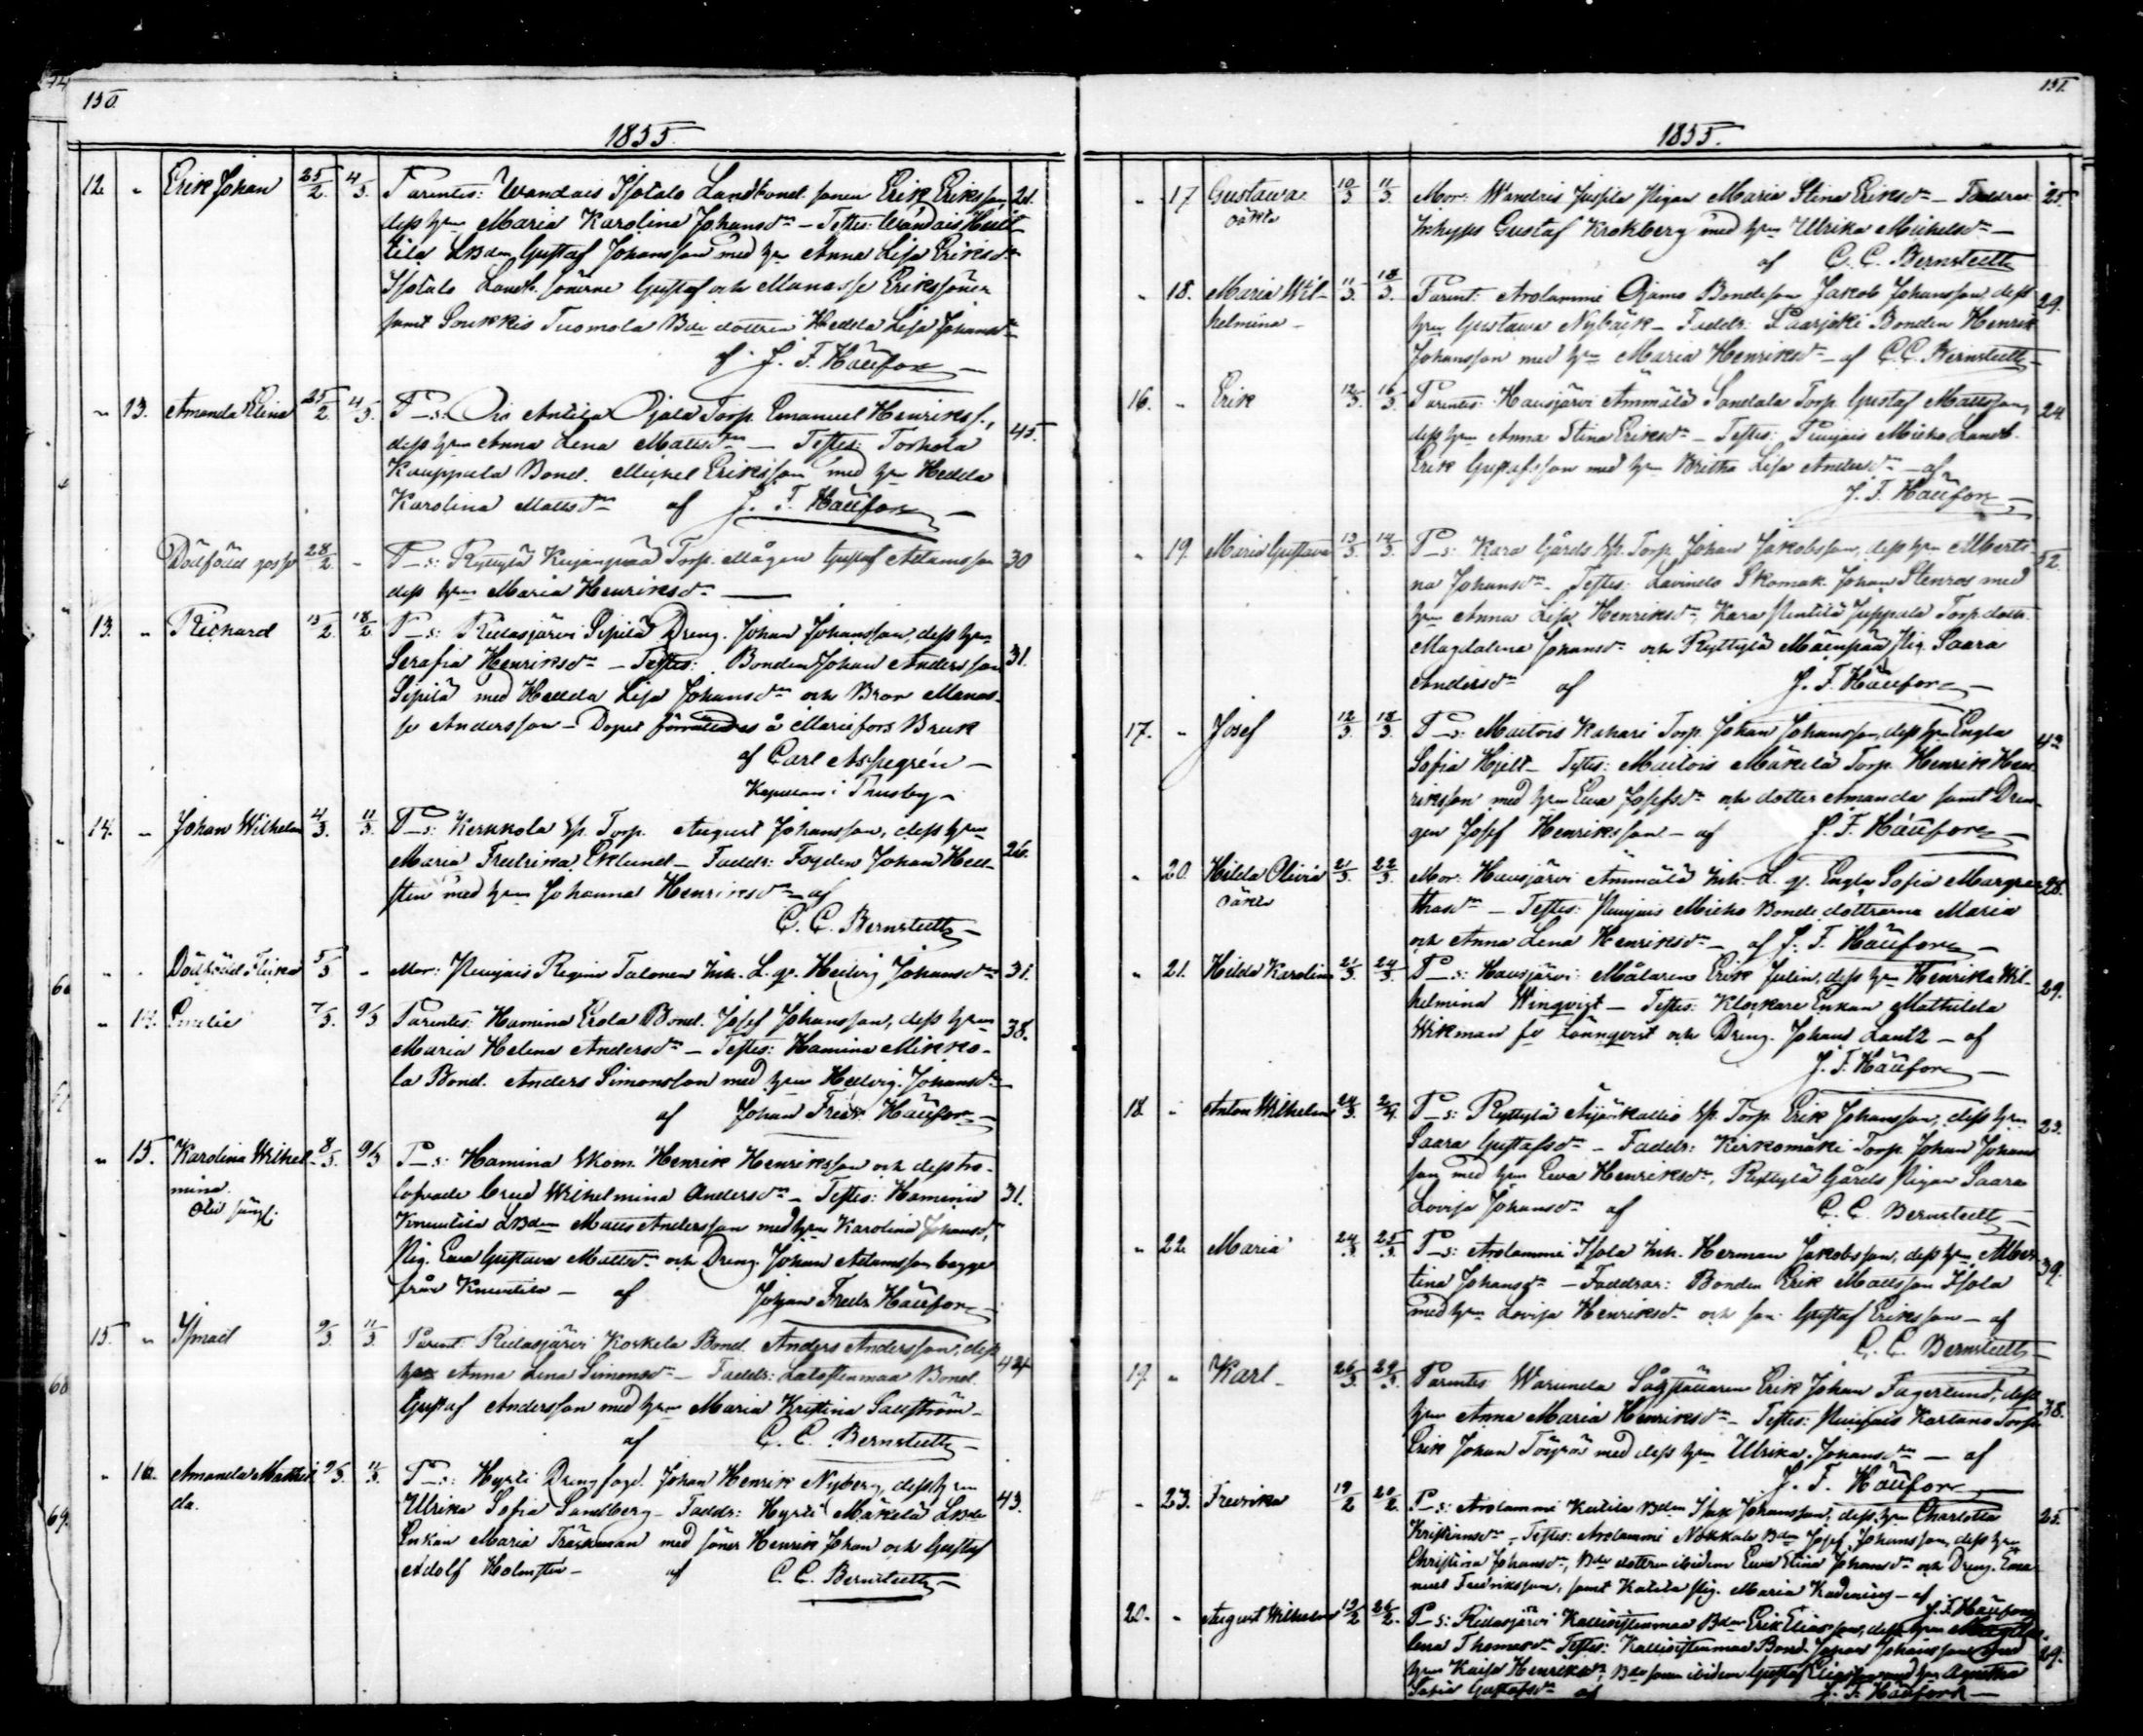 150.
1855.
12. " Erik Johan 25/2. 4/3. Parentes: Wandais Isotalo Landbond. sonen Erik Eriksson, 21.
dess h:u Maria Karolina Johansd:r – Testes: Wandais Heik-
kilä LBdn Gustaf Johansson med h:u Anna Lisa Eriksd:r
Isotalo Landb. sönerne Gustaf och Manasse Erikssöner
samt Soukkis Tuomola Bde dottren Hedda Lisa Johansd:r
af J. F. Häufor
" 13. Amanda Elina 25/2. 4/3. P_s: Ois Antila Ojala Torp. Emanuel Henrikss., 45.
dess h:u Anna Lena Mattsd:r – Testes: Torhola
Kauppala Bond. Mickel Eriksson med h:u Hedda
Karolina Mattsd:r af J. F. Häufor
Dödfödd gosse 28/2. - P_s: Ryttylä Torp. Mågen Gustaf Adamsson 30
dess h:u Maria Henriksd:r
13. " Richard 13/2. 18/2. P_s: Ridasjärvi Sipilä Dreng. Johan Johansson, dess h:u
Serafia Henriksd:r – Testes: Bonden Johan Andersson 31.
Sipilä med Hedda Lisa Johansd:r och Bror Manas-
se Andersson – Dopet förrättades å Mariefors Bruk
af Carl Aspegrén
Kapellan i Thusby
14. " Johan Wilhelm 4/3. 11/3. P_s: Kerkkola Torp. August Johansson, dess h:u
Maria Fredrika Eklund – Faddr: Fogden Johan Hell- 26.
sten med h:u Johanna Henriksd:r af
C. C. Bernstedt
" " Dödfödd Flicka 5/3 - Mor: Puujais Talonen Inh. L. q. Hedvig Johansd:r 31.
" 14. Emelie 7/3. 9/3 Parentes: Hamina Erola Bond. Josef Johansson, dess h:u
Maria Helena Andersd:r – Testes: Hamina Mikko- 38.
la Bond. Anders Simonsson med h:u Hedvig Johansd:r
af Johan Fredr. Häufor
" 15. Karolina Wilhel- 8/3. 9/3 P_s: Hamina Skom. Henrik Henriksson och dess tro-
mina. lofvade brud Wilhelmina Andersd:r – Testes: Hamina 31.
Knuutila LBdn Matts Andersson med h:u Karolina Johansd:r,
Pig. Ewa Gustava Mattsd:r och Dreng Johan Adamsson begge
från Knuutila – af Johan Fredr. Häufor
15. " Ismael 9/3 11/3 Parent: Ridasjärvi Koskela Bond. Anders Andersson, dess
h:u Anna Lena Simonsd:r – Faddr: Latostenmaa Bond. 42
Gustaf Andersson med h:u Maria Kristina Sallström
af C. C. Bernstedt
" 16. Amanda Mathil- 9/3. 11/3. P_s: Hyrli Drengfogd. Johan Henrik Nyberg, dess h:u
da. Ulrika Sofia Sandberg – Faddr: Hyrli Mäkelä LBde 43.
Enkan Maria Träskman med söner Henrik Johan och Gustaf
Adolf Holmsten – af C. C. Bernstedt
151.
1855.
" 17 Gustawa 10/3 11/3 Mor: Wandais Jussila Pigan Maria Stina Eriksd:r – Faddrar 25.
oäkta Inhyses Gustaf Krokberg med h:u Ulrika Michelsd:r –
af C. C. Bernstedt
" 18. Maria Wil- 11/3. 18/3. Parent: Arolammi Ojamo Bondeson Jakob Johansson, dess 29.
helmina h:u Gustawa Nybäck – Faddr: Paarjoki Bonden Henrik
Johansson med h:u Maria Henriksd:r – af C. C. Bernstedt
16. " Erik 12/3. 16/3. Parentes: Hausjärvi Ämmälä Sandala Torp. Gustaf Mattsson, 24
dess h:u Anna Stina Eriksd:r – Testes: Puujais Micko Landb.
Erik Gustafsson med h:u Britha Lisa Andersd:r – af
J. F. Häufor
" 19. Maria Gustava 13/3. 14/3. P_s: Kara Gårds Torp. Johan Jakobsson, dess h:u Alberti- 32.
na Johansd:r – Testes: Lavinto Skomak. Johan Stenros med
h:u Anna Lisa Henriksd:r, Kara Penttilä Juppala Torp. dottr.
Magdalena Johansd:r och Ryttylä Mäenpää Pig. Saara
Andersd:r af J. F. Häufor
17. " Josef 12/3. 18/3. P_s: Maitois Kahari Torp. Johan Johansson, dess h:u Engla
Sofia Hjelt – Testes: Maitois Mäkelä Torp. Henrik Hen-
riksson med h:u Ewa Josefsd:r och dotter Amanda samt Dren-
gen Josef Henriksson – af J. F. Häufor
" 20. Hilda Olivia 21/3. 22/3. Mor: Hausjärvi Ämmälä Inh. L. q. Engla Sofia Margre- 28.
oäkta thasd:r – Testes: Puujais Micko Bonde döttrarna Maria
och Anna Lena Henriksd:r – af J. F. Häufor
" 21. Hilda Karolina 21/3. 24/3 P_s: Hausjärvi Målaren Erik Julin, dess h:u Henrika Wil- 29.
helmina Winqvist – Testes: Klockare Enkan Mathilda
Wikman fö Lönnqvist och Dreng. Johan Lantz – af
J. F. Häufor
18. " Anton Wilhelm 24/3. 2/4. P_s: Ryttylä Torp. Erik Johansson, dess h:u 23.
Saara Gustafsd:r – Faddr: Kirkomäki Torp. Johan Johans-
son med h:u Ewa Henriksd:r, Ryttylä Gårds Pigan Saara
Lovisa Johansd:r af C. C. Bernstedt
" 22. Maria 24/3 25/3. P_s: Arolammi Isola Inh. Herman Jakobsson, dess h:u Alber- 39.
tina Johansd:r – Faddrar: Bonden Erik Mattsson Isola
med h:u Lovisa Henriksd:r och son Gustaf Eriksson – af
C. C. Bernstedt
19. " Karl 26/3. 29/3. Parentes: Warunda Erik Johan Fagerlund, dess
h:u Anna Maria Henriksd:r – Testes: Puujais Torp. 38.
Erik Johan med dess h:u Ulrika Johansd:r – af
J. F. Häufor
" 23. Fredrika 19/2 20/2. P_s: Arolammi Kaitila Bdn Isak Johansson, dess h:u Charlotta 25.
Kristiansd:r – Testes: Arolammi Nokkala Bdn Josef Johansson, dess h:u
Christina Johansd:r, Bde dottren ibidem Ewa Stina Johansd:r och Dreng. Ema-
nuel Fredriksson, samt Pig. Maria – af J. F. Häufor
20. " August Wilhelm 19/2 26/2. P_s: Ridasjärvi Kallioistenmaa Bdn Erik Eliasson, dess h:u
lena Thomasd:r Testes: Kallioistenmaa Bond Johan Johansson med 29.
h:u Kaisa Henriksd:r, Bde sonen ibidem Gustaf Eliasson med h:u Agatha
Sofia Gustafsd:r af J. F. Häufor